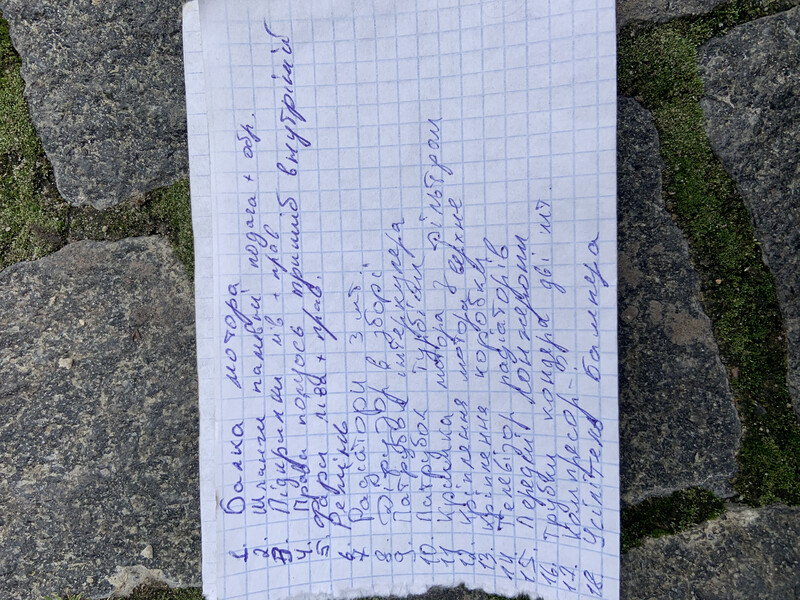 1. Балка мотора
2. Шланги паливні подача + обр.
3. Підкрилки лів + прав
4. Права полуось тришиб внутрішній
5. Фари ліва + прав.
6. Ремінь
7. Радіатори 3 шт.
8. Діфузор в зборі
9. Патрубки інтеркулера
10. Патрубок турбіни
11 Кришка мотора з фільтром
12. Кріплення мотора верхнє
13. Кріплення коробки
14. Телевізор радіаторів
15. Передні лонжерони
16. Трубки кондера дві шт.
17. Компресор
18. Усілітель бампера